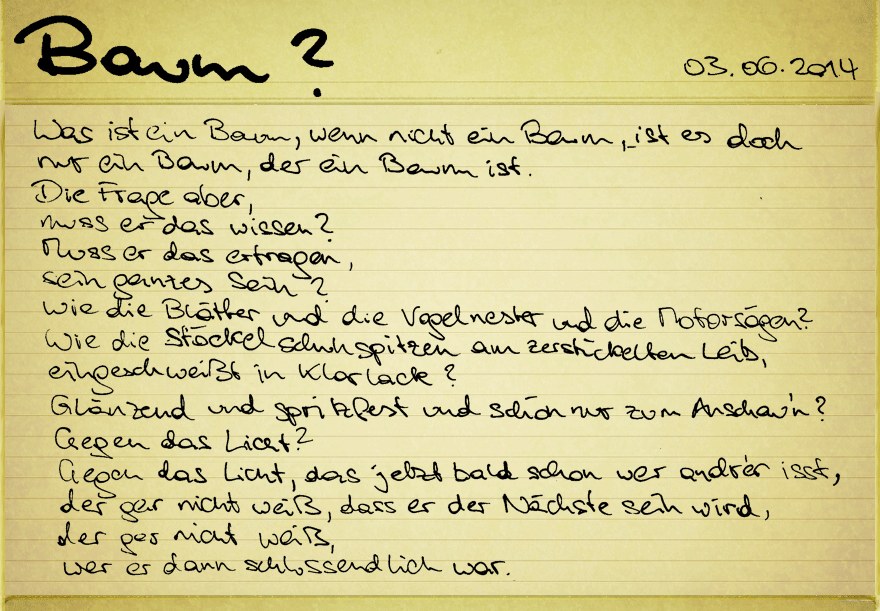 Baum?
03.06.2014
Was ist ein Baum, wenn nicht ein Baum, ist es doch
nur ein Baum, der ein Baum ist.
Die Frage aber,
muss er das wissen?
Muss er das ertragen,
sein ganzes Sein?
Wie die Blätter und die Vogelnester und die Motorsägen?
Wie die Stöckelschuhspitzen am zerstückelten Leib,
eingeschweißt in Klarlack?
Glänzend und spritzfest und schön nur zum Anschau'n?
Gegen das Licht?
Gegen das Licht, das jetzt bald schon wer andrer isst,
der gar nicht weiß, dass er der Nächste sein wird,
der gar nicht weiß,
wer er dann schlussendlich war.